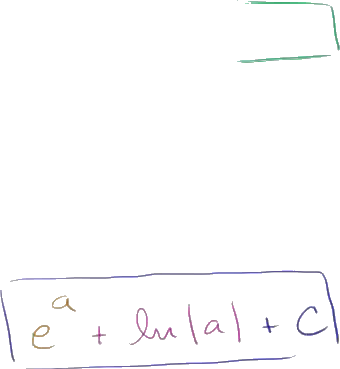 e^a + ln|a| + C